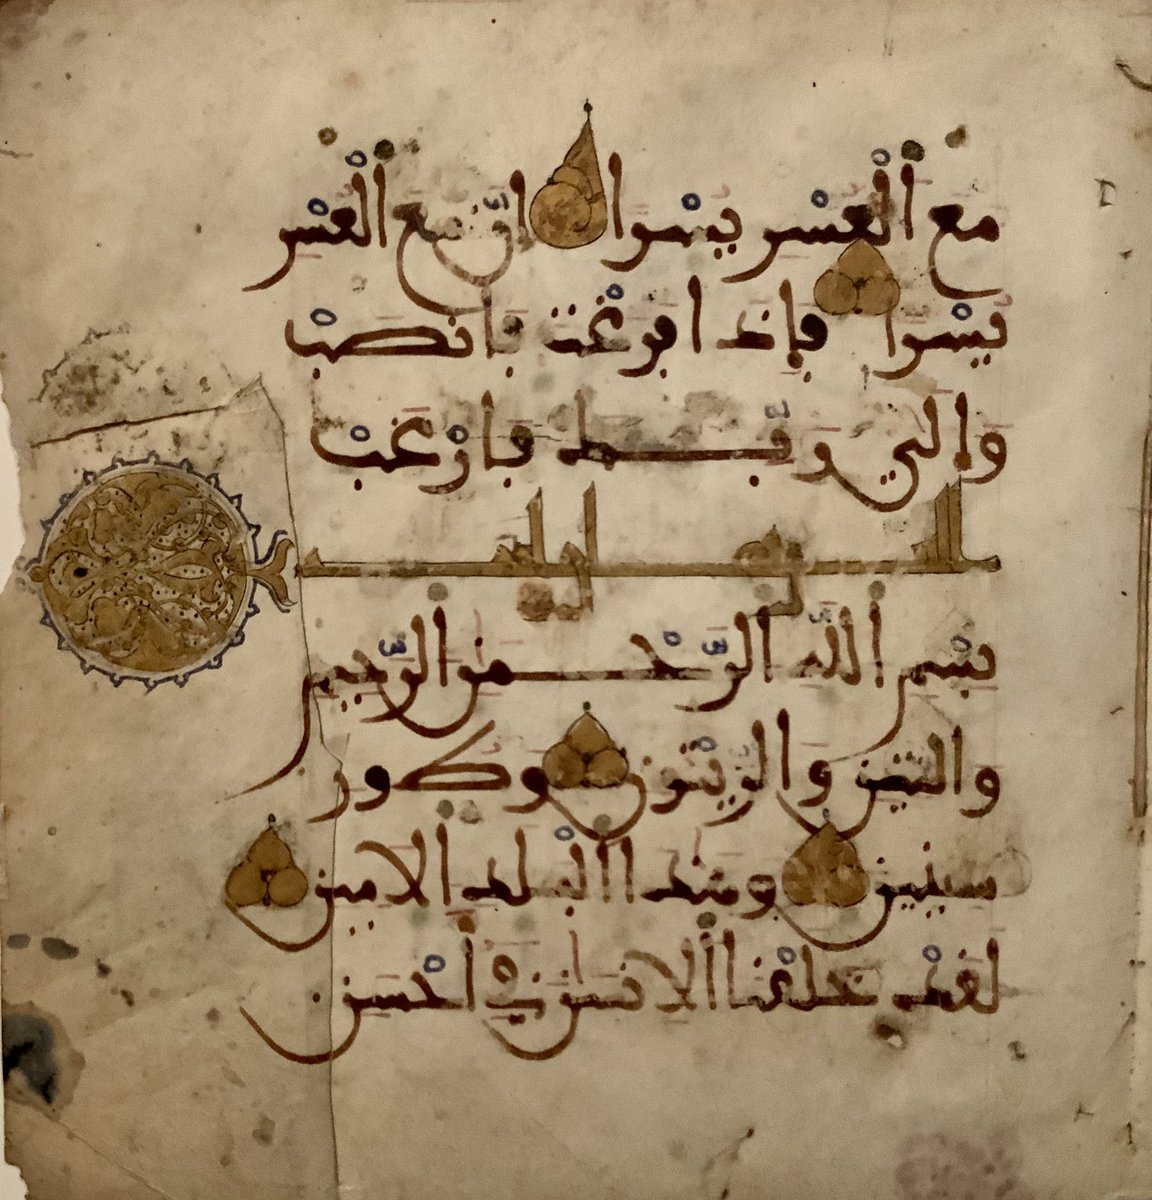 مع ٱلعسْر يسْرا إنّ مع ٱلعسْر
يسْرا فإذا فرغْت فانصبْ
وإلى ربّك فارْغبْ
بسْم ٱللّه ٱلرّحْمٰن ٱلرّحيم
والتين والزيتون وطور
سينين وهٰذا ٱلبلد ٱلامين
لقدْ خلقْنا ٱلانسٰن في أحْسن